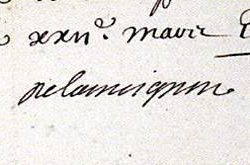 xxii^e. mars
Delamoignon